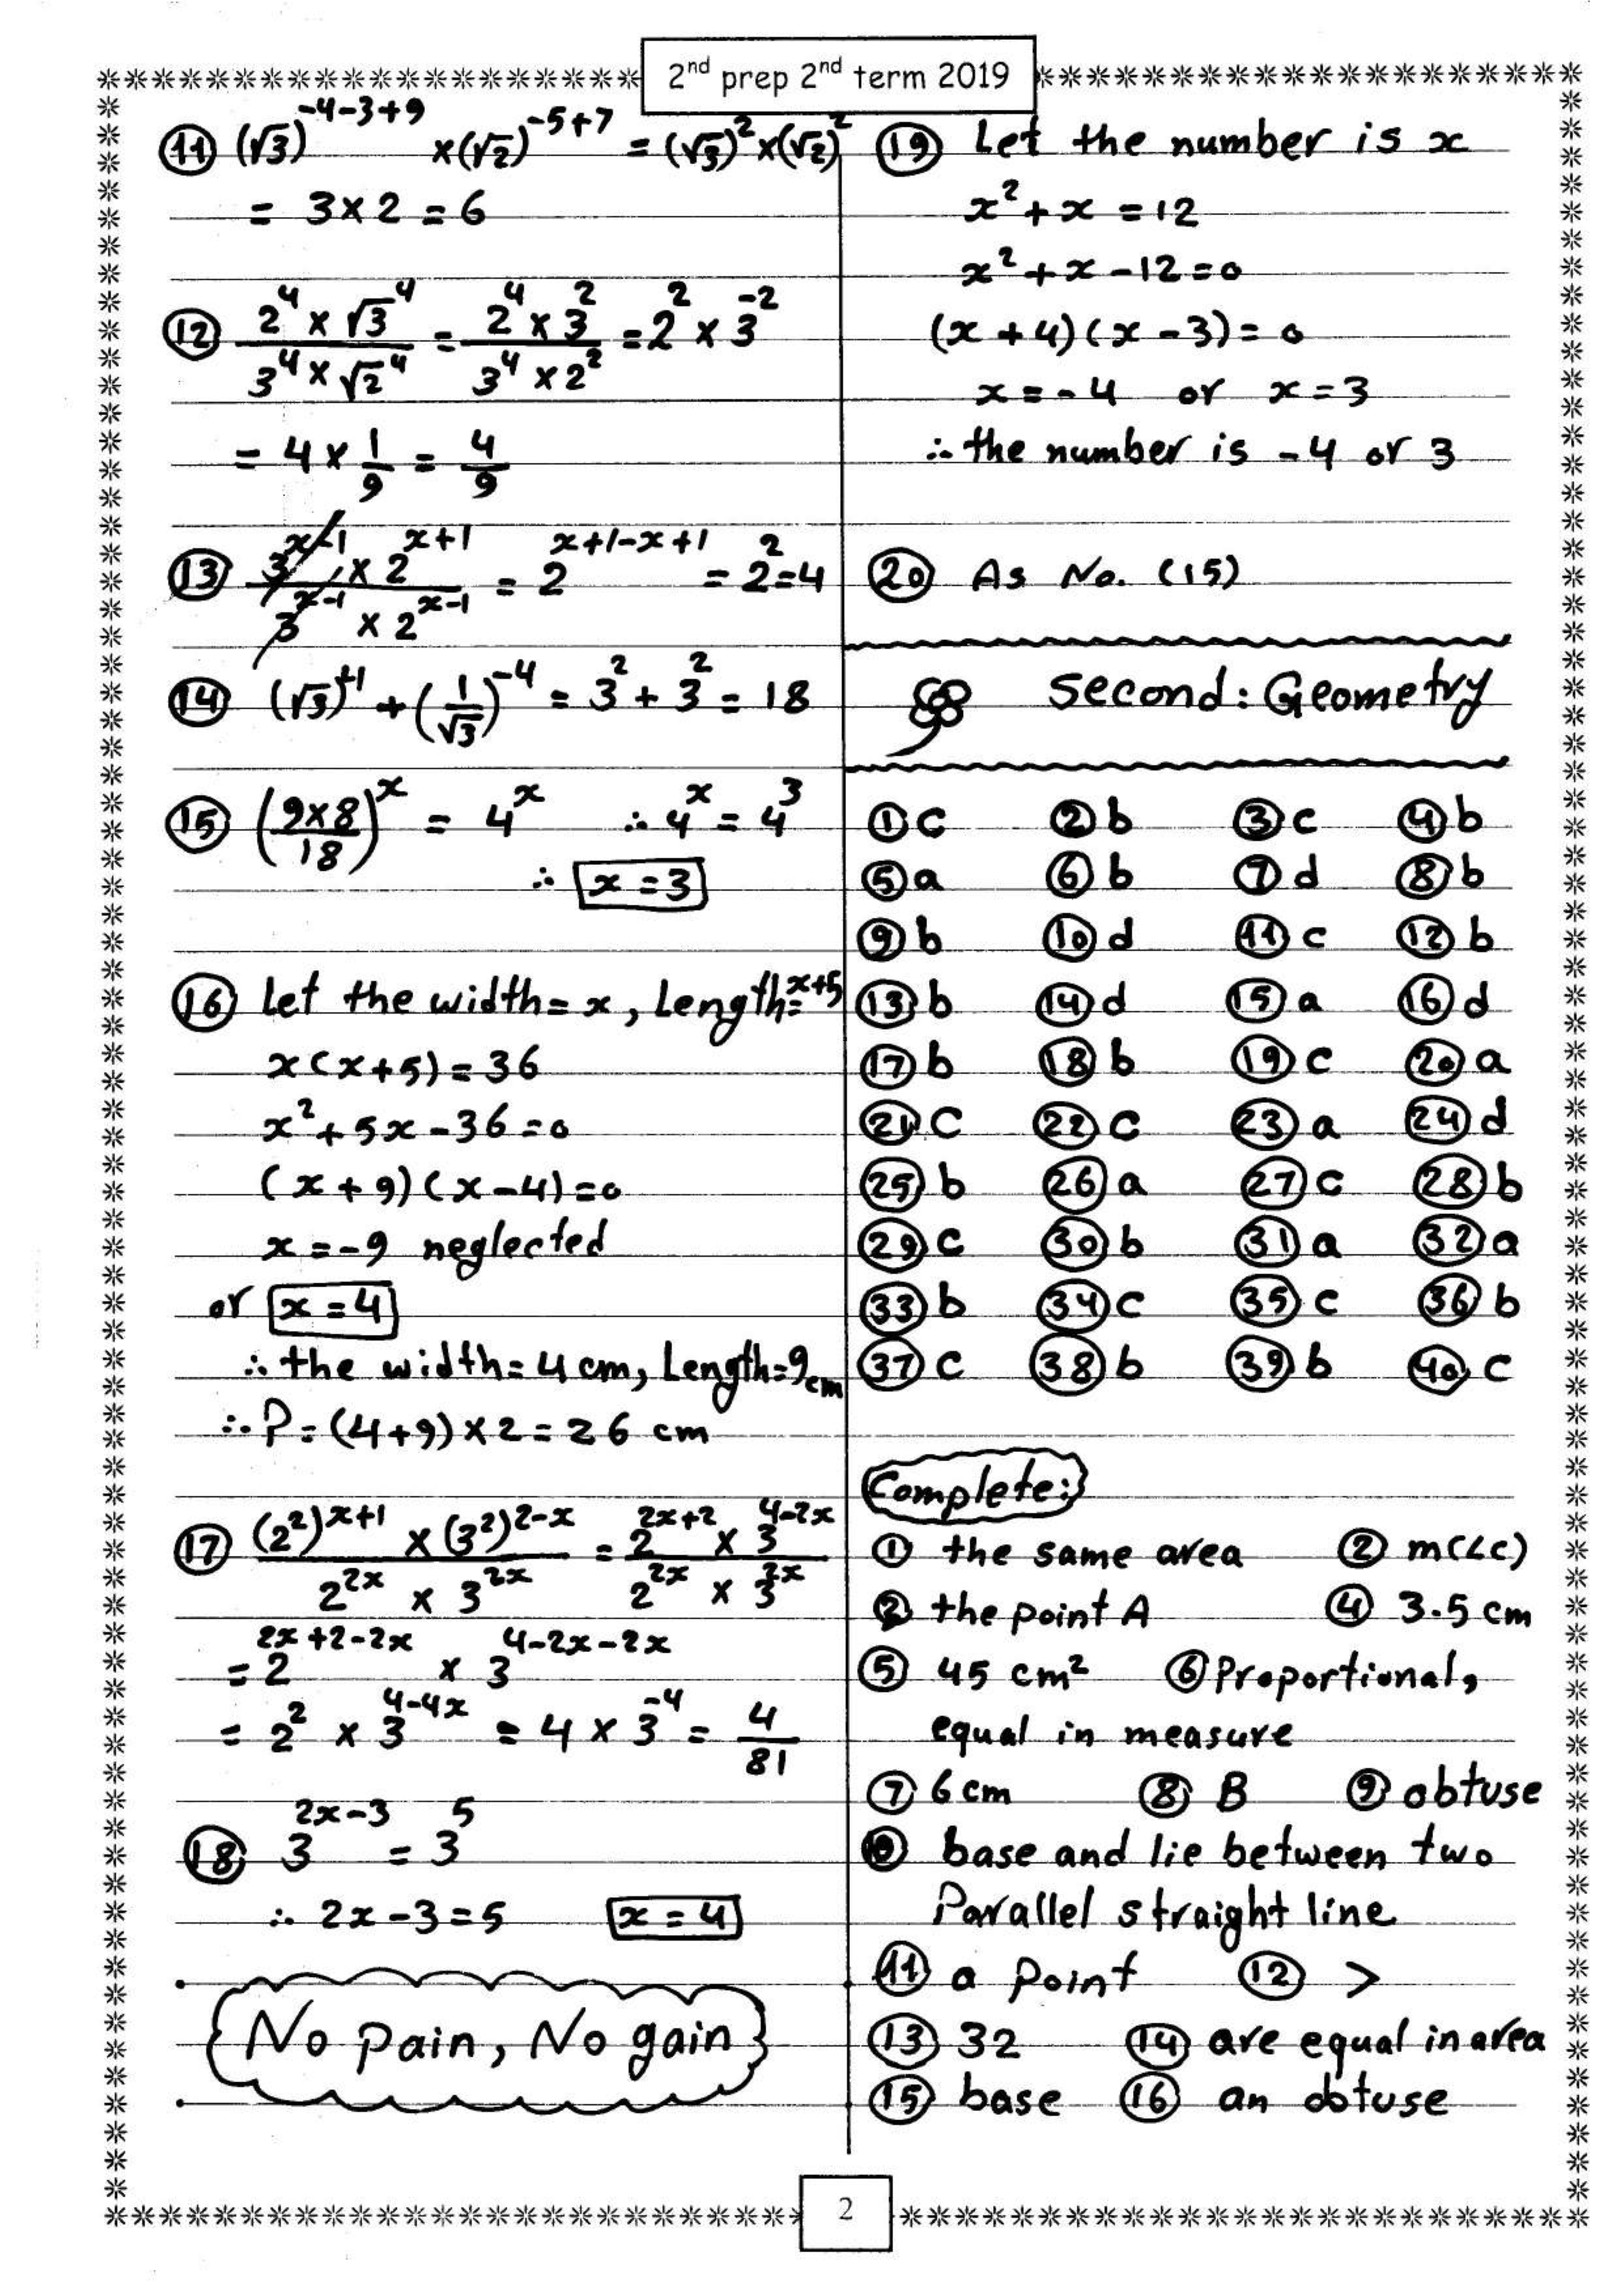 2nd prep 2nd term 2019
⑪ (√3)^-4-3+9 ×(√2)^-5+7 = (√3)^2 ×(√2)^2
= 3×2 = 6
⑫ 2^4 × √3^4 / 3^4 × √2^4 = 2^4 × 3^2 / 3^4 × 2^2 = 2^2 × 3^-2
= 4 × 1/9 = 4/9
⑬ 3^x-1 × 2^x+1 / 3^x-1 × 2^x-1 = 2^x+1-x+1 = 2^2 = 4
⑭ (√3)^4 + (1/√3)^-4 = 3^2 + 3^2 = 18
⑮ (9×8/18)^x = 4^x ∴ 4^x = 4^3
∴ x = 3
⑯ Let the width = x, Length = x+5
x(x+5) = 36
x^2 + 5x - 36 = 0
(x + 9)(x - 4) = 0
x = -9 neglected
or x = 4
∴ the width = 4 cm, Length = 9 cm
∴ P = (4+9) × 2 = 26 cm
⑰ (2^2)^x+1 × (3^2)^2-x / 2^2x × 3^2x = 2^2x+2 × 3^4-2x / 2^2x × 3^2x
= 2^2x+2-2x × 3^4-2x-2x
= 2^2 × 3^4-4x = 4 × 3^-4 = 4/81
⑱ 3^2x-3 = 3^5
∴ 2x-3 = 5 x = 4
No pain, No gain
⑲ Let the number is x
x^2 + x = 12
x^2 + x - 12 = 0
(x + 4)(x - 3) = 0
x = -4 or x = 3
∴ the number is -4 or 3
⑳ As No. (15)
Second: Geometry
① c ② b ③ c ④ b
⑤ a ⑥ b ⑦ d ⑧ b
⑨ b ⑩ d ⑪ c ⑫ b
⑬ b ⑭ d ⑮ a ⑯ d
⑰ b ⑱ b ⑲ c ⑳ a
㉑ c ㉒ c ㉓ a ㉔ d
㉕ b ㉖ a ㉗ c ㉘ b
㉙ c ㉚ b ㉛ a ㉜ a
㉝ b ㉞ c ㉟ c ㊱ b
㊲ c ㊳ b ㊴ b ㊵ c
Complete:
① the same area ② m(∠c)
② the point A ④ 3.5 cm
⑤ 45 cm² ⑥ Proportional,
equal in measure
⑦ 6 cm ⑧ B ⑨ obtuse
⑩ base and lie between two
Parallel straight line
⑪ a point ⑫ >
⑬ 32 ⑭ are equal in area
⑮ base ⑯ an obtuse
2